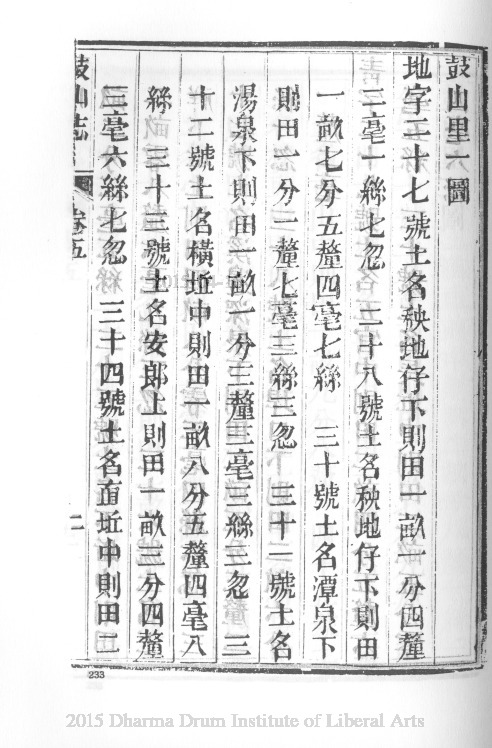 鼓山里一圖
地字二十七號土名秧地仔下則田一畝一分四釐
三毫一絲七忽　二十八號土名秧地仔下則田
一畝七分五釐四毫七絲　三十號土名潭泉下
則田一分一釐七毫三絲三忽　三十一號土名
湯泉下則田一畝一分三釐三毫三絲三忽　三
十二號土名橫坵中則田一畝八分五釐四毫八
絲　三十三號土名安郎上則田一畝三分四釐
三毫六絲七忽　三十四號土名直坵中則田二
鼓山志　卷五　二
233
2015 Dharma Drum Institute of Liberal Arts